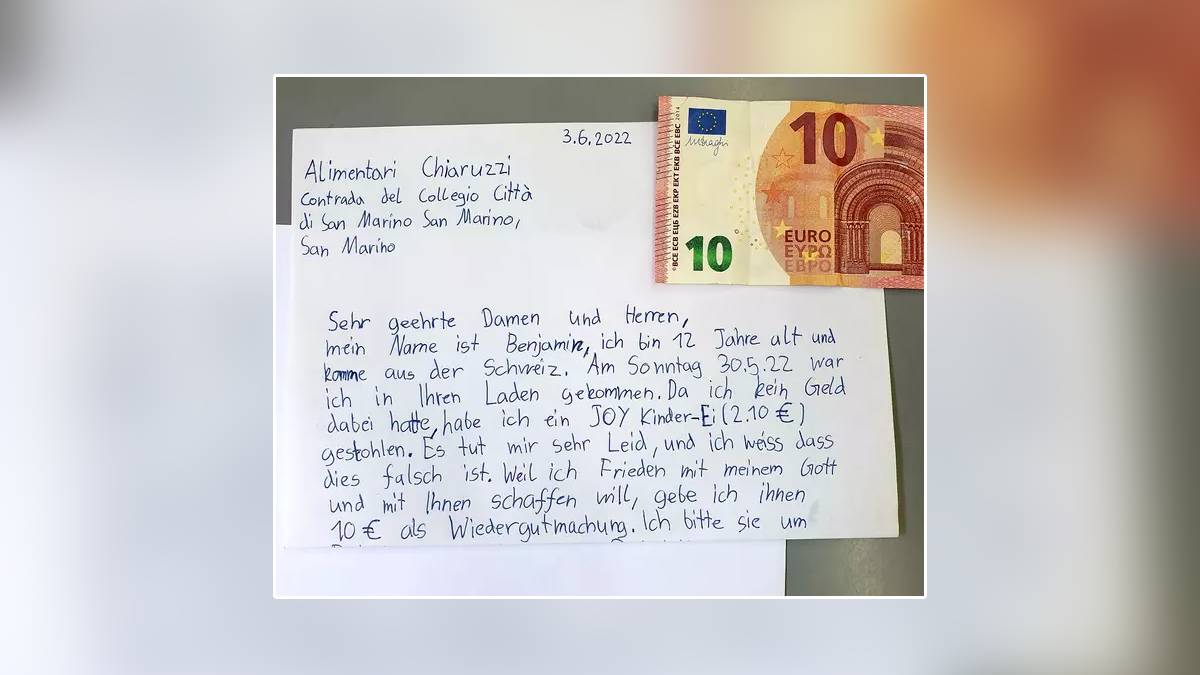 3.6.2022
Alimentari Chiaruzzi
Contrada del Collegio Città
di San Marino San Marino,
San Marino
Sehr geehrte Damen und Herren,
mein Name ist Benjamin, ich bin 12 Jahre alt und
komme aus der Schweiz. Am Sonntag 30.5.22 war
ich in Ihren Laden gekommen. Da ich kein Geld
dabei hatte, habe ich ein JOY Kinder-Ei (2.10 €)
gestohlen. Es tut mir sehr Leid, und ich weiss dass
dies falsch ist. Weil ich Frieden mit meinem Gott
und mit Ihnen schaffen will, gebe ich ihnen
10 € als Wiedergutmachung. Ich bitte sie um
10
10
EURO
ΕΥΡΩ
ЕВРО
BCE ECB ЕЦБ EZB EKP EKT EKB BCE EBC 2014